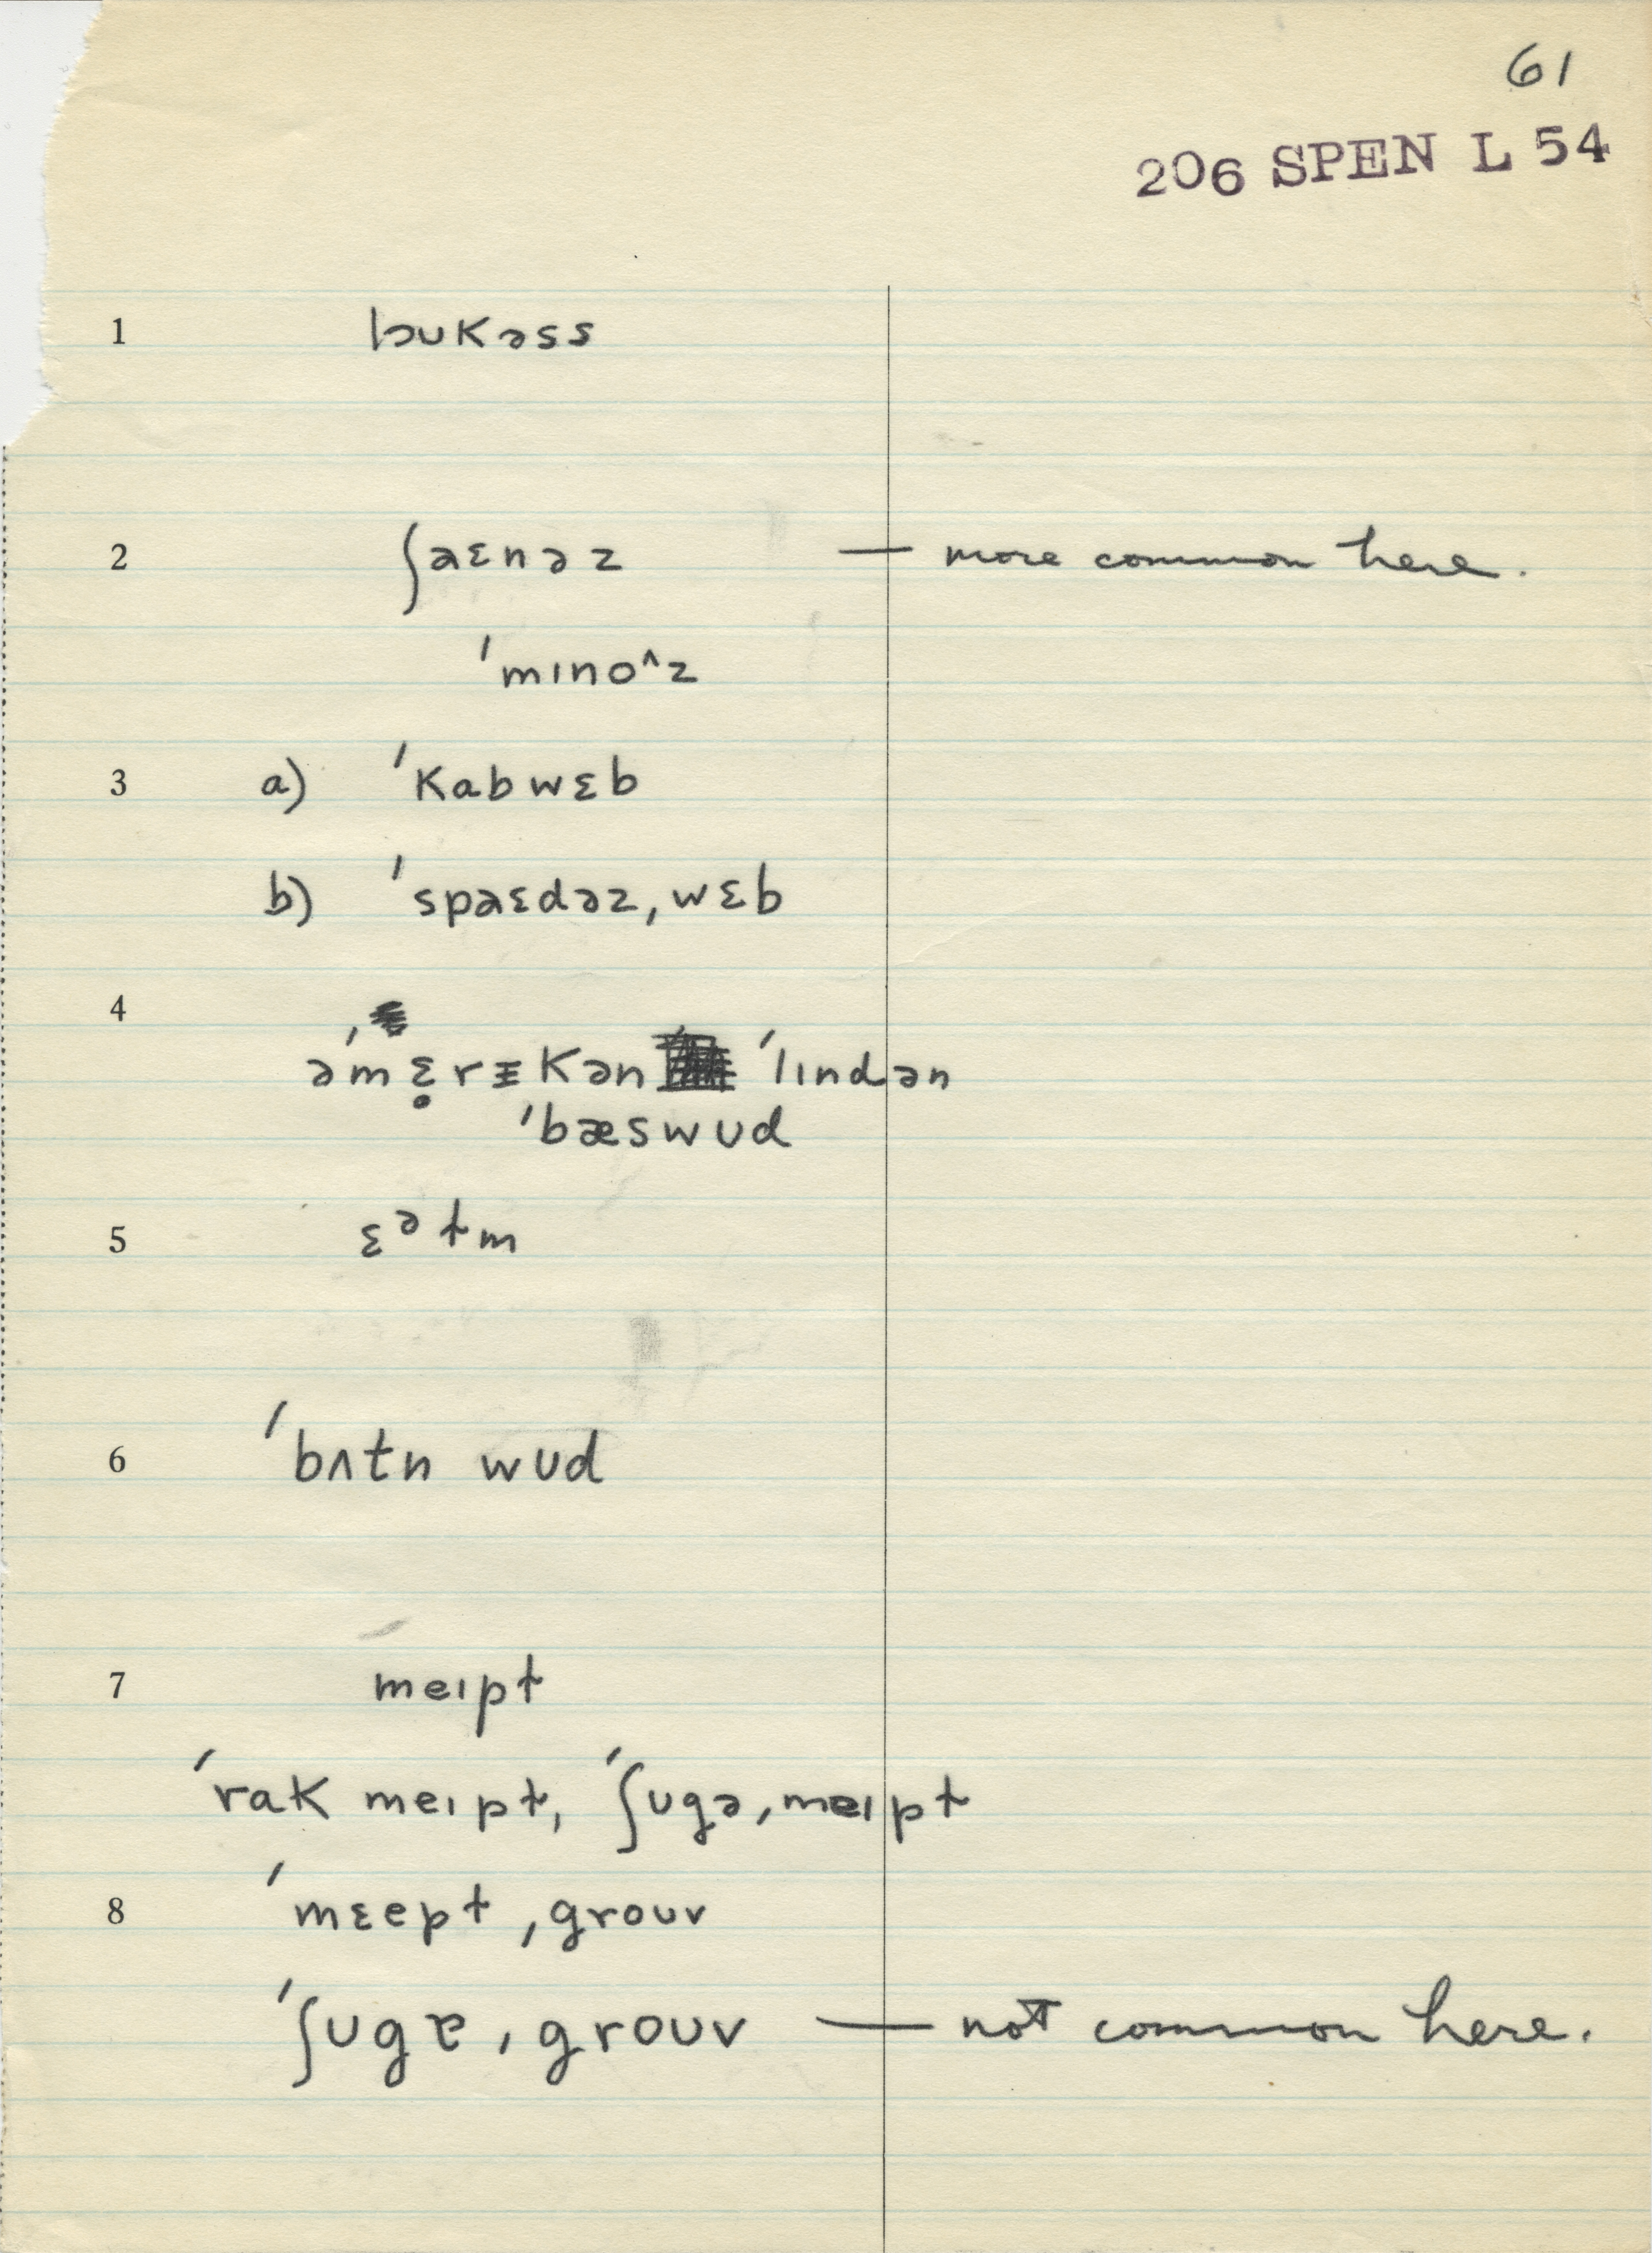 61
206 SPEN L 54
1 lɔukəss
2 ʃaɛnəz — more common here.
ˈmɪnoˆz
3 a) ˈkabwɛb
b) ˈspaɛdəzˌwɛb
4
əˈmɛ̥rᵻkən ˈlɪndən
ˈbæswʊd
5 ɛᵊɫm
6 ˈbʌtn wʊd
7 meɪpɫ
ˈrak meɪpɫ, ˈʃʊgəˌmeɪpɫ
8 ˈmɛepɫˌgroʊv
ˈʃʊgɐˌgroʊv — not common here.